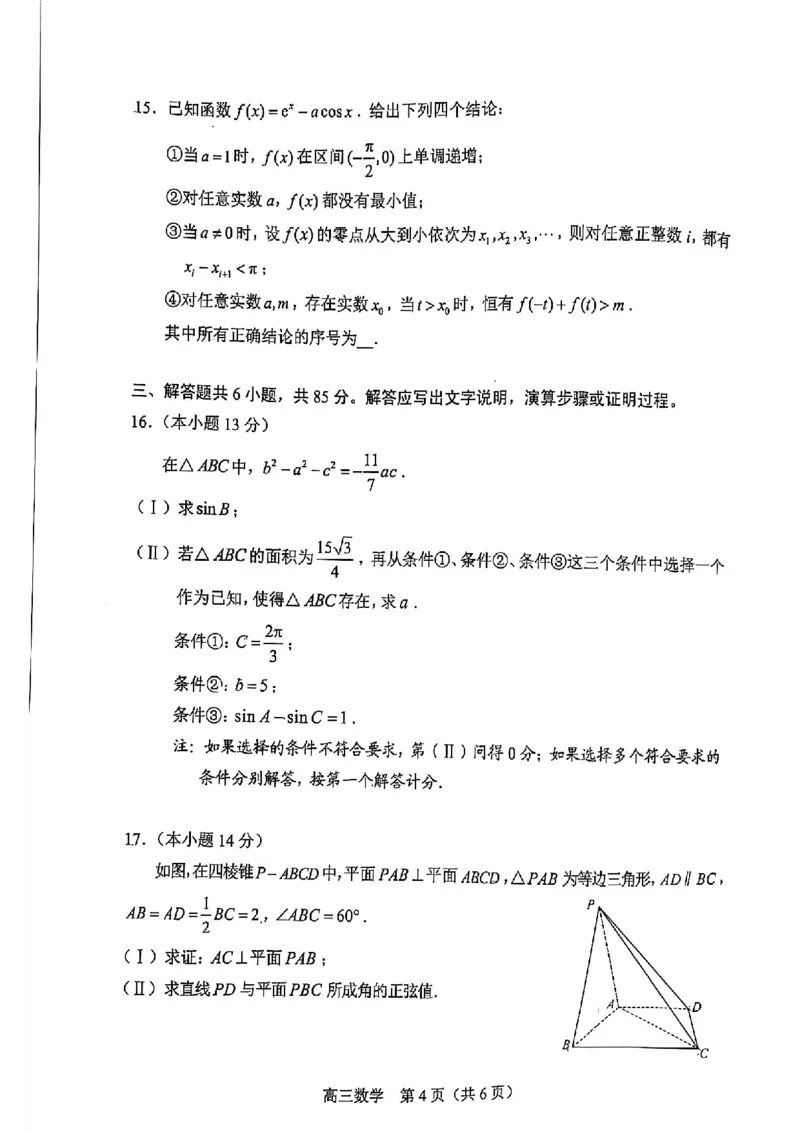 15. 已知函数 f(x)=eˣ-acosx. 给出下列四个结论:
①当a=1时, f(x)在区间(-π/2,0)上单调递增;
②对任意实数a, f(x)都没有最小值;
③当a≠0时, 设f(x)的零点从大到小依次为x₁,x₂,x₃,…, 则对任意正整数i, 都有
xᵢ-xᵢ₊₁<π;
④对任意实数a,m, 存在实数x₀, 当t>x₀时, 恒有f(-t)+f(t)>m.
其中所有正确结论的序号为__.
三、解答题共6小题, 共85分。解答应写出文字说明, 演算步骤或证明过程。
16.(本小题13分)
在△ABC中, b²-a²-c²=-11/7ac.
(Ⅰ)求sinB;
(Ⅱ)若△ABC的面积为15√3/4, 再从条件①、条件②、条件③这三个条件中选择一个
作为已知, 使得△ABC存在, 求a.
条件①: C=2π/3;
条件②: b=5;
条件③: sinA-sinC=1.
注: 如果选择的条件不符合要求, 第(Ⅱ)问得0分; 如果选择多个符合要求的
条件分别解答, 按第一个解答计分.
17.(本小题14分)
如图, 在四棱锥P-ABCD中, 平面PAB⊥平面ABCD, △PAB为等边三角形, AD∥BC,
AB=AD=1/2BC=2, ∠ABC=60°.
(Ⅰ)求证: AC⊥平面PAB;
(Ⅱ)求直线PD与平面PBC所成角的正弦值.
P
A
D
B
C
高三数学 第4页(共6页)